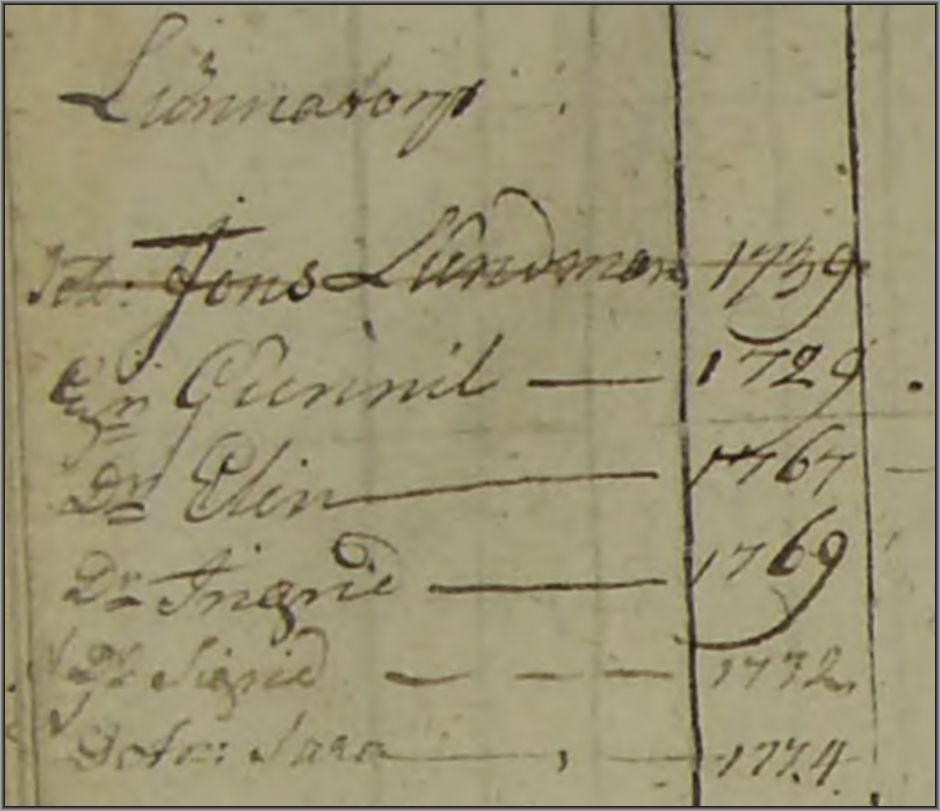 Liünnatorp
Sold: Jöns Lundman 1739
Hu Gunnil — 1729
Dr Elin — 1767
Dr Ingrid — 1769
Dr Signid — — — 1772
Dotr: Sara — 1774